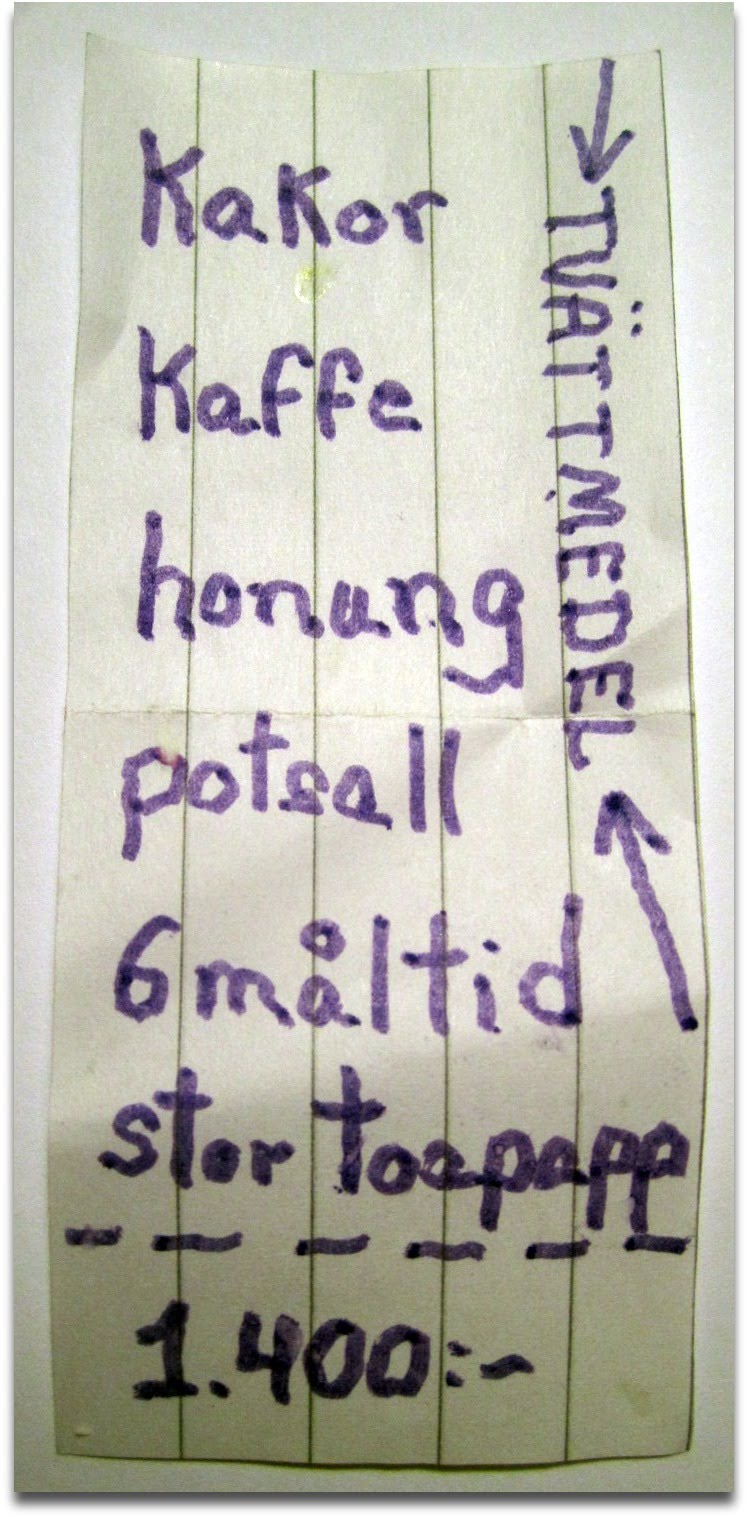 Kakor
Kaffe
honung
potsall
6 måltid
stor toapapp
1.400:-
TVÄTTMEDEL